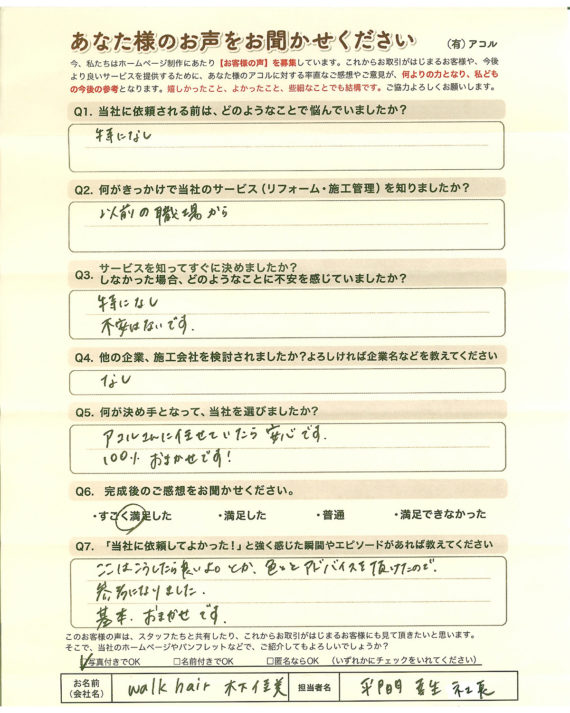 あなた様のお声をお聞かせください
(有)アコル
今、私たちはホームページ制作にあたり【お客様の声】を募集しています。これからお取引がはじまるお客様や、今後
より良いサービスを提供するために、あなた様のアコルに対する率直なご感想やご意見が、何よりの力となり、私ども
の今後の参考となります。嬉しかったこと、よかったこと、些細なことでも結構です。ご協力よろしくお願いします。
Q1. 当社に依頼される前は、どのようなことで悩んでいましたか?
特になし
Q2. 何がきっかけで当社のサービス(リフォーム・施工管理)を知りましたか?
以前の職場から
Q3. サービスを知ってすぐに決めましたか?
しなかった場合、どのようなことに不安を感じていましたか?
特になし
不安はないです.
Q4. 他の企業、施工会社を検討されましたか?よろしければ企業名などを教えてください
なし
Q5. 何が決め手となって、当社を選びましたか?
アコルさんに任せていたら 安心です.
100% おまかせです!
Q6. 完成後のご感想をお聞かせください。
・すごく満足した ・満足した ・普通 ・満足できなかった
Q7. 「当社に依頼してよかった!」と強く感じた瞬間やエピソードがあれば教えてください
ここはこうしたら良いよ とか、色々と アドバイスを頂けたので.
参考になりました.
基本、おまかせ です.
このお客様の声は、スタッフたちと共有したり、これからお取引がはじまるお客様にも見て頂きたいと思います。
そこで、当社のホームページやパンフレットなどで、ご紹介してもよろしいでしょうか?
写真付きでOK □名前付きでOK □匿名ならOK (いずれかにチェックをいれてください)
お名前
(会社名)
walk hair 木下佳美
担当者名
社長